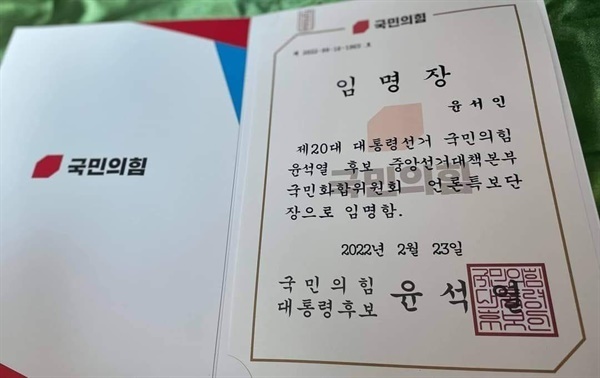 국민의힘
국민의힘
임명장
윤서인
제20대 대통령선거 국민의힘
윤석열 후보 중앙선거대책본부
국민화합위원회 언론특보단
장으로 임명함.
국민의힘
2022년 2월 23일
국민의힘
대통령후보 윤석열